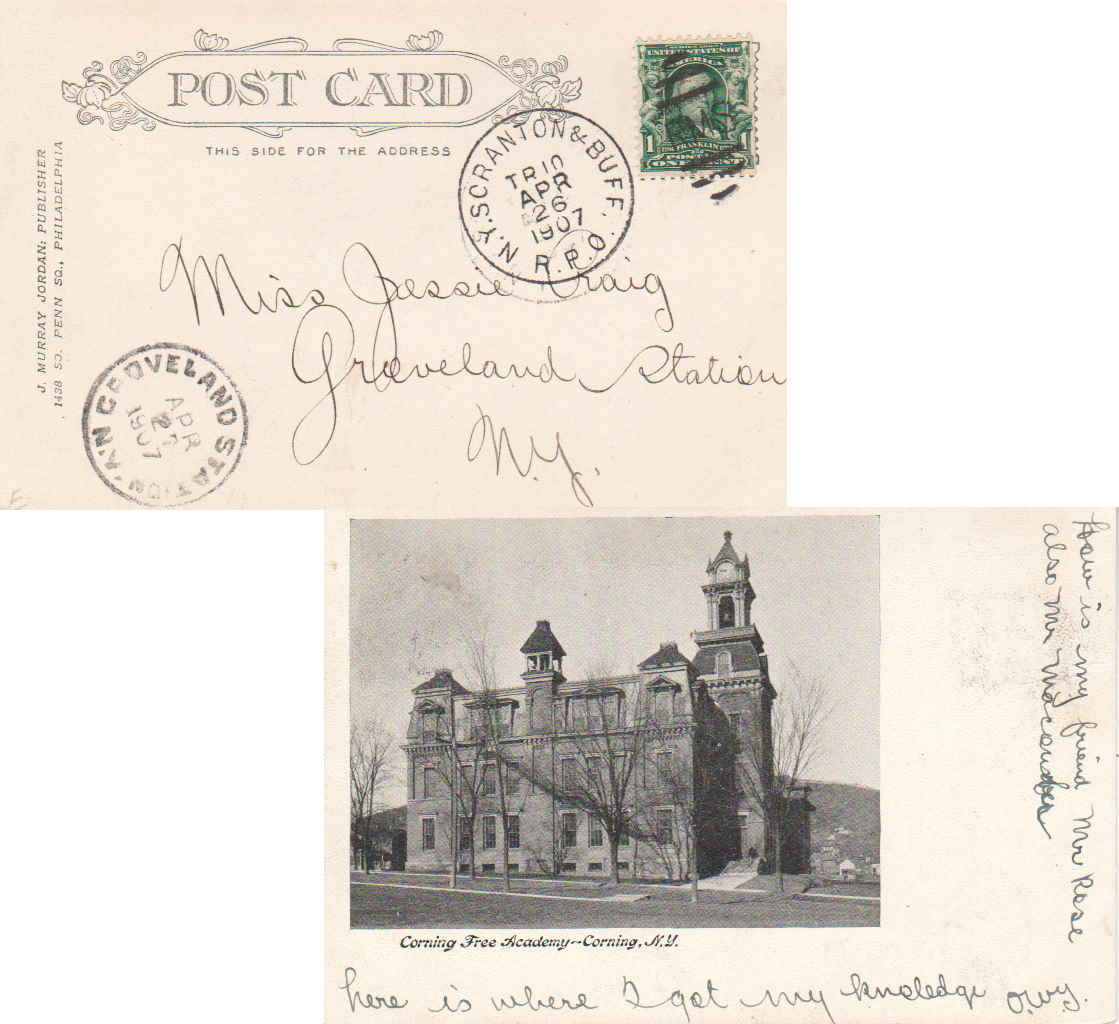 POST CARD
THIS SIDE FOR THE ADDRESS
J. MURRAY JORDAN: PUBLISHER
1438 SO. PENN SQ., PHILADELPHIA
SERIES 1902
UNITED STATES OF
AMERICA
1
FRANKLIN
POSTAGE
ONE CENT
N.Y. SCRANTON & BUFF. R.P.O.
TR10
APR
26
1907
Miss Jessie Craig
Groveland Station
N.Y.
GROVELAND STATION N.Y.
APR
1907
Corning Free Academy--Corning, N.Y.
how is my friend Mr Rose
also Mr
here is where I got my knoledge